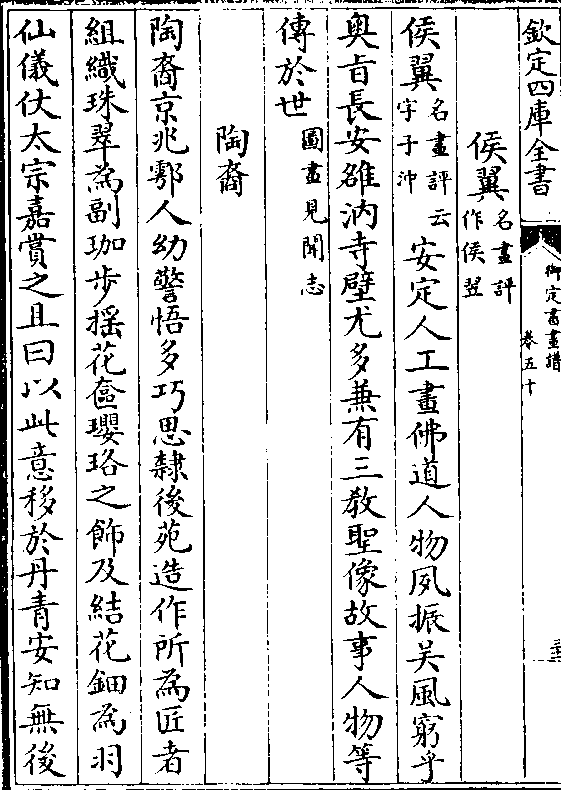 欽定四庫全書
御定書畫譜
卷五十
侯翼名畫評作侯翌
侯翼名畫評云字子沖安定人工畫佛道人物夙振吴風窮乎
奥旨長安雒汭寺壁尤多兼有三教聖像故事人物等
傳於世圖畫見聞志
陶裔
陶裔京兆鄠人幼警悟多巧思隸後苑造作所為匠者
組織珠翠為副珈步揺花奩瓔珞之飾及結花鈿為羽
仙儀仗太宗嘉賞之且曰以此意移於丹青安知無後